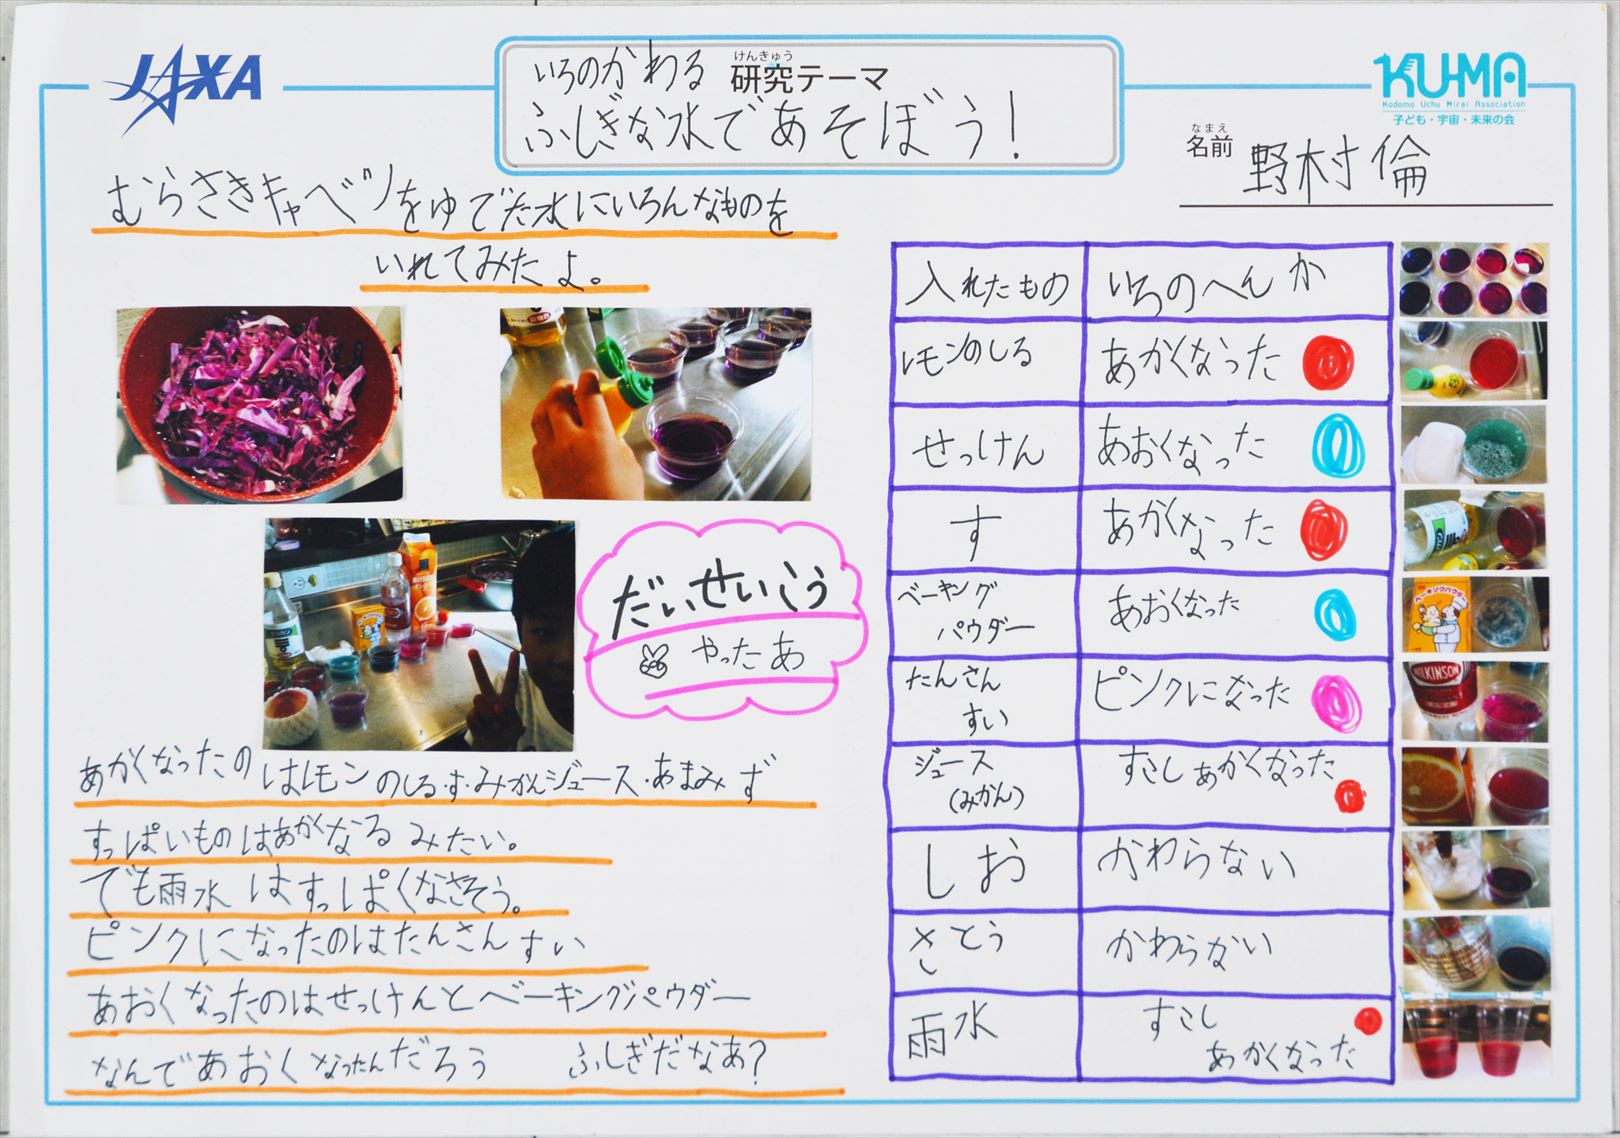 JAXA
いろのかわる
けんきゅう
研究テーマ
ふしぎな水であそぼう!
KU-MA
Kodomo Uchu Mirai Association
子ども・宇宙・未来の会
なまえ
名前 野村倫
むらさきキャベツをゆでた水にいろんなものを
いれてみたよ。
だいせいこう
やったあ
あかくなったのはレモンのしる・す・みかんジュース・あまみず
すっぱいものはあかくなるみたい。
でも雨水はすっぱくなさそう。
ピンクになったのはたんさんすい
あおくなったのはせっけんとベーキングパウダー
なんであおくなったんだろう ふしぎだなあ?
入れたもの いろのへんか
レモンのしる あかくなった
せっけん あおくなった
す あかくなった
ベーキング
パウダー
あおくなった
たんさん
すい
ピンクになった
ジュース
(みかん)
すこしあかくなった
しお かわらない
さとう かわらない
雨水
すこし
あかくなった
ベーキングパウダー
WILKINSON